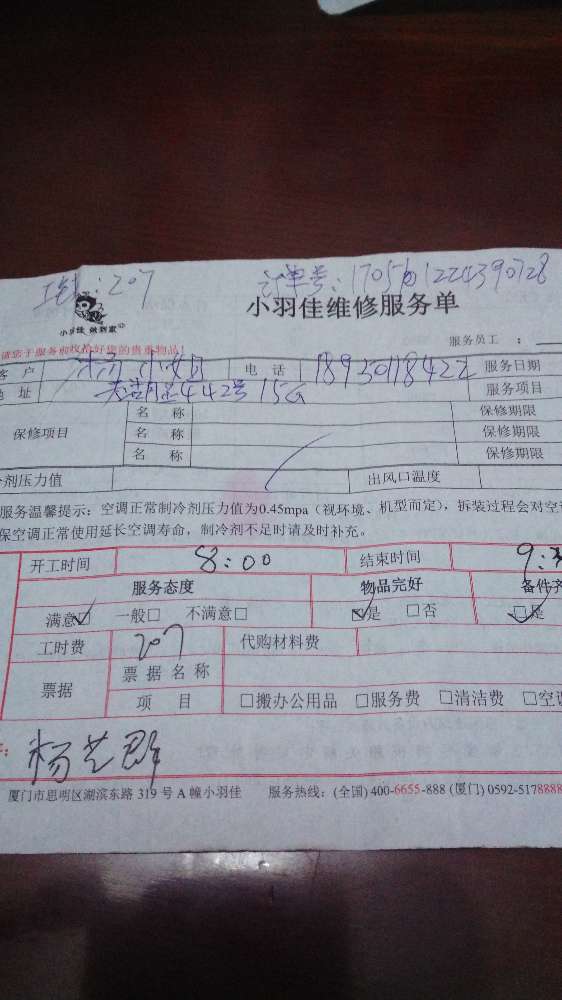 207 订单号：170561224390728
小羽佳 做到家
小羽佳维修服务单
服务员工：
请您于服务前收拾好您的贵重物品！
客户 杨小姐 电话 服务日期
地址 442号15G 服务项目
保修项目 名称 保修期限
名称 保修期限
名称 保修期限
冷剂压力值 出风口温度
服务温馨提示：空调正常制冷剂压力值为0.45mpa（视环境、机型而定），拆装过程会对空
保空调正常使用延长空调寿命，制冷剂不足时请及时补充。
开工时间 8:00 结束时间 9:3
服务态度 物品完好 备件齐
满意☑ 一般□ 不满意□ ☑是 □否 ☑是
工时费 207 代购材料费
票据 票据名称
项目 □搬办公用品 □服务费 □清洁费 □空调
杨艺群
厦门市思明区湖滨东路 319 号 A 幢小羽佳 服务热线：(全国) 400-6655-888 (厦门) 0592-5178888